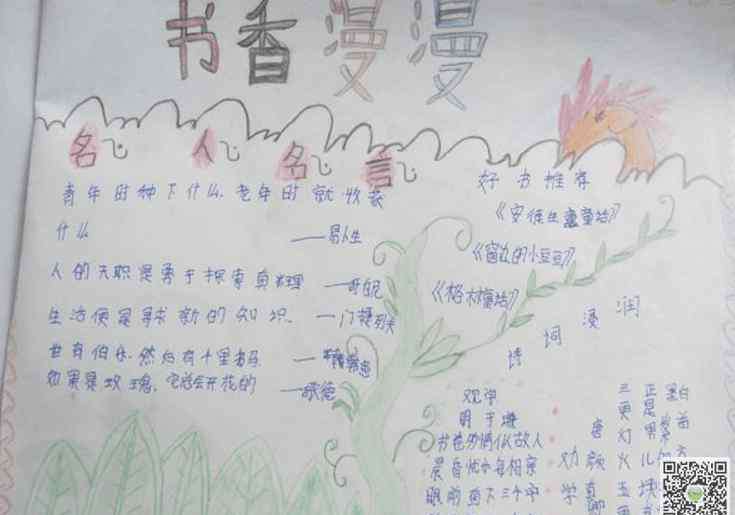 书香漫漫
名人名言
青年时种下什么,老年时就收获
什么 ——易卜生
人的天职是勇于探索真理 ——哥白尼
生活便是寻求新的知识. ——门捷列夫
世有伯乐,然后有千里马 ——韩愈
如果是玫瑰,它总会开花的 ——歌德
好书推荐
《安徒生童话》
《窗边的小豆豆》
《格林童话》
诗词浸润
观书
明 于谦
书卷多情似故人
晨昏忧乐每相亲
眼前直下三千字
劝学
唐 颜真卿
三更灯火五
正是男儿
黑白